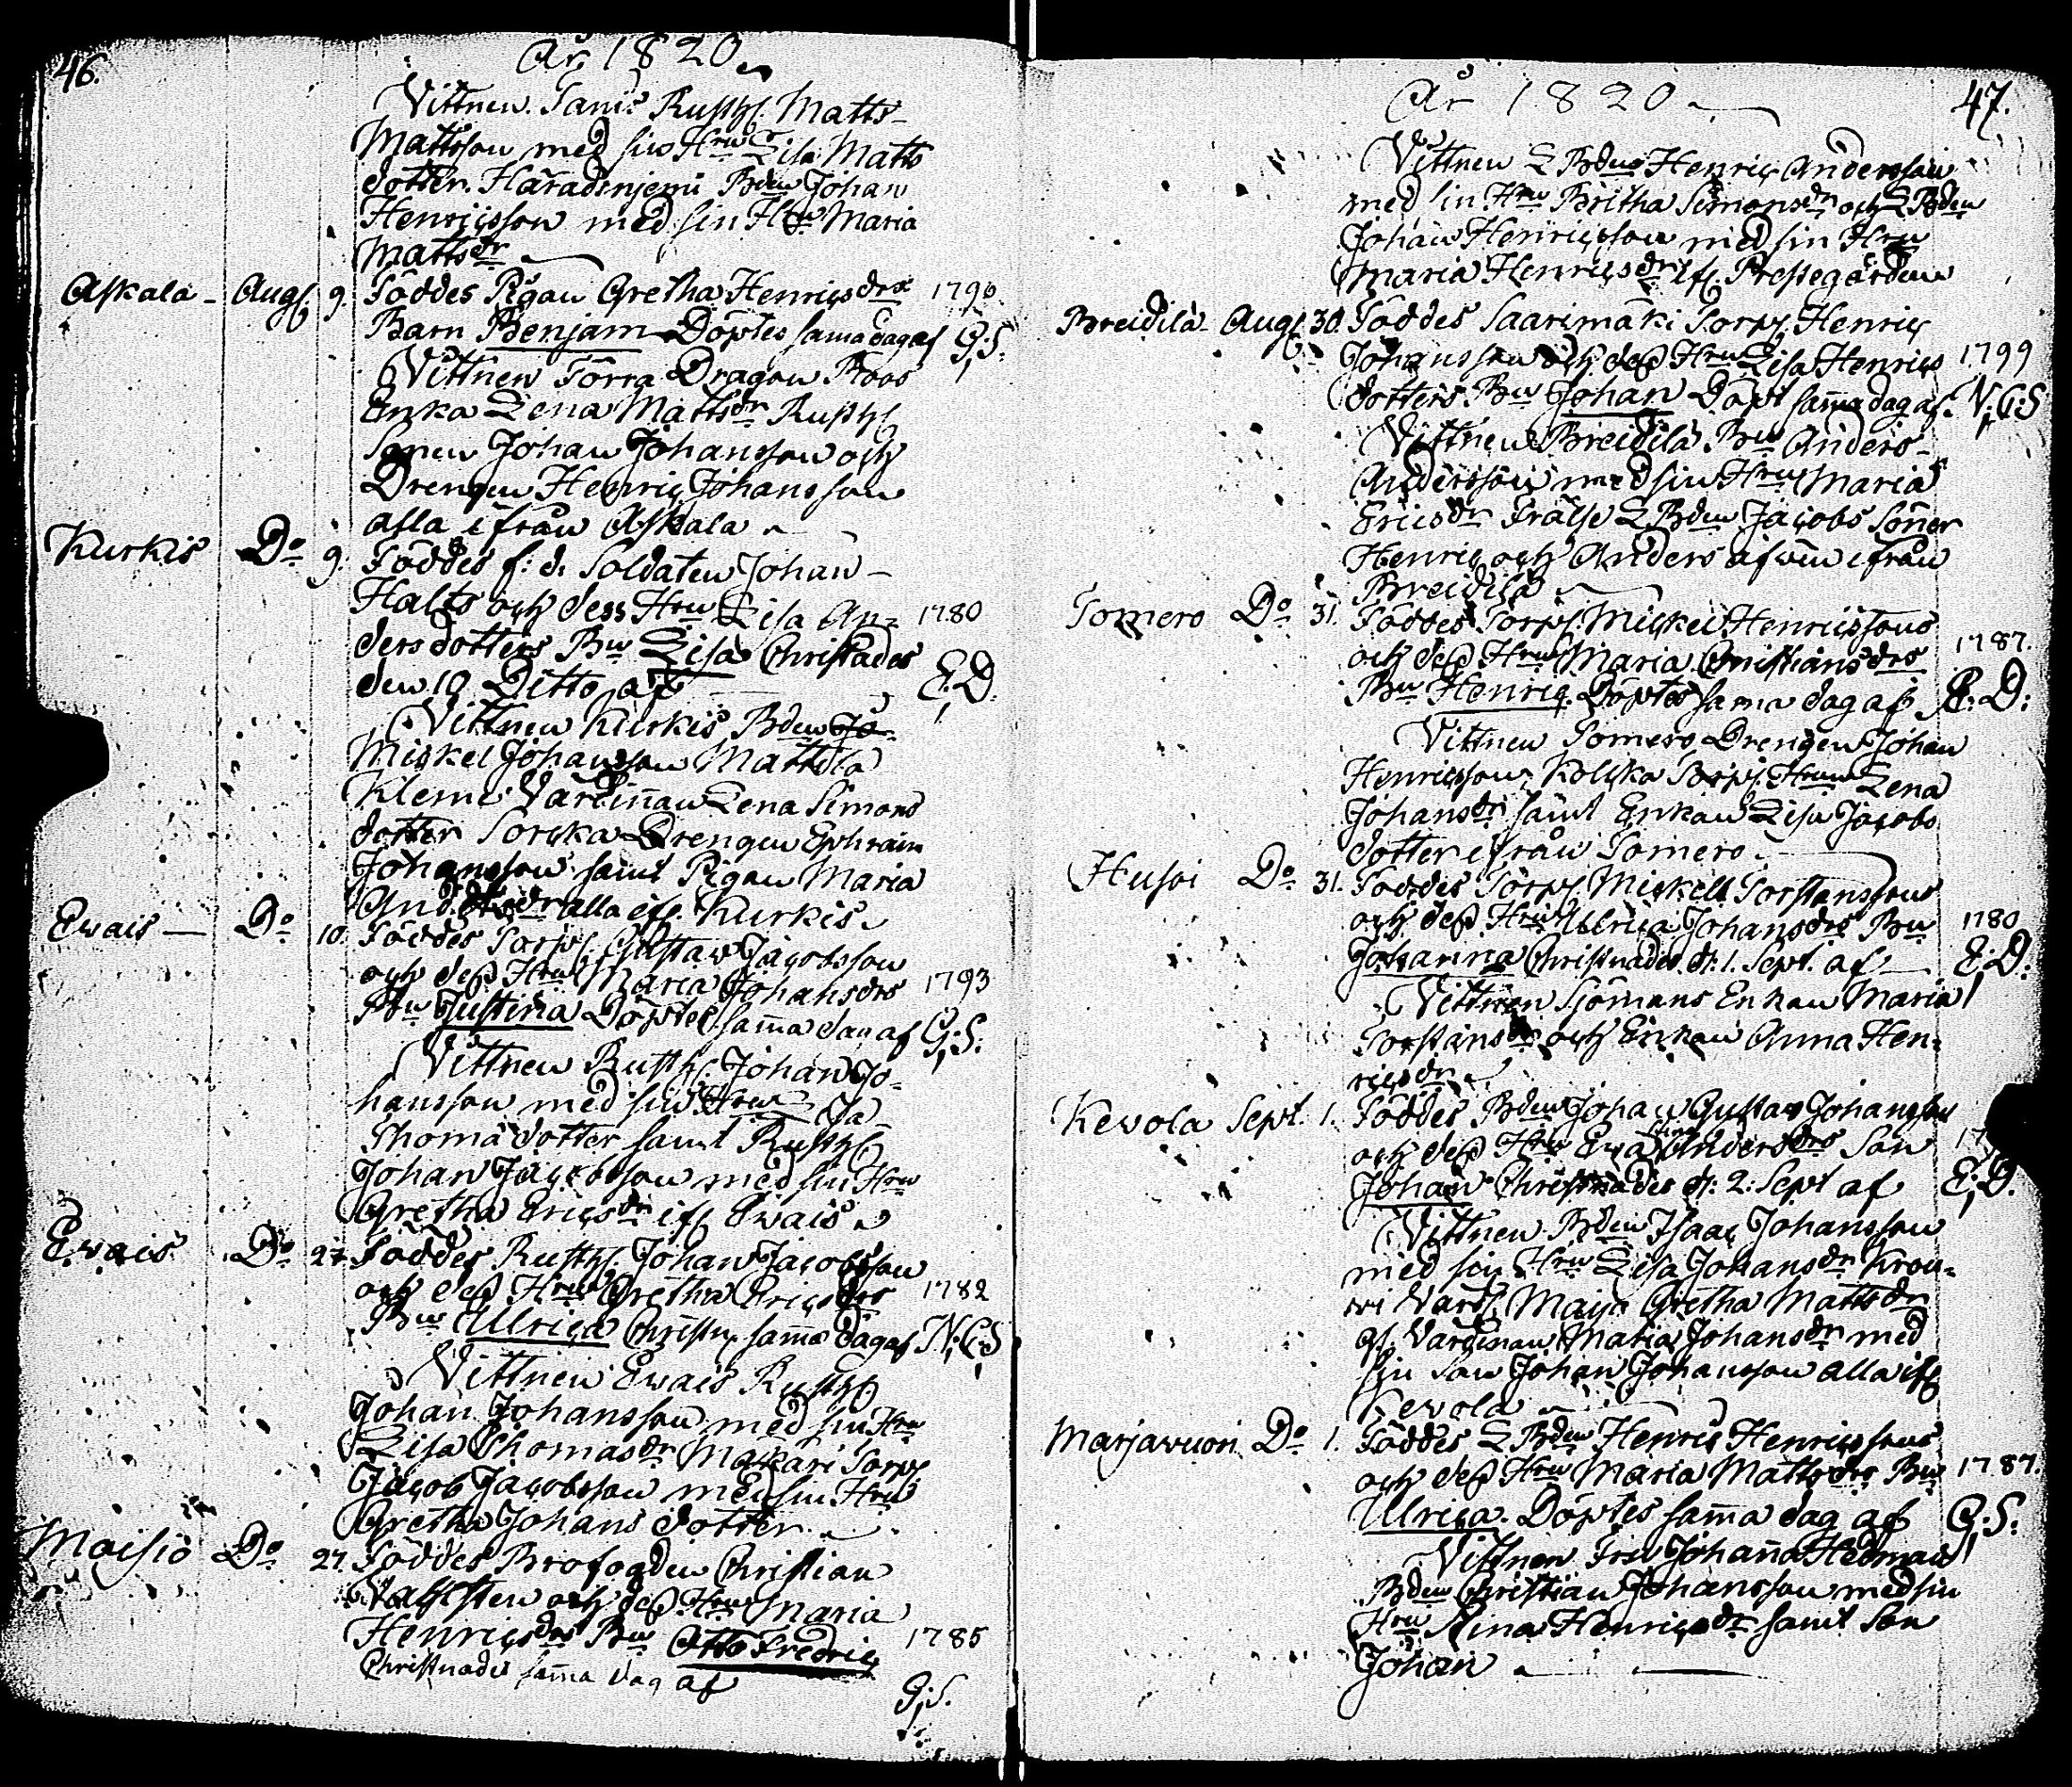 46.
År 1820
Vittnen. Tami Rusth. Matts
Mattsson med sin Hru Lisa Matts
dotter. Häradsnjemn Bden Johan
Henricsson med sin Hru Maria
Mattsdr
Askala - Aug. 9. Föddes Pigan Gretha Henricsdrs 1790.
Barn Benjam Döptes sama dag af G.S.
Vittnen Torra Dragon Roos
Enka Lena Mattsdr Rusth.
Sonen Johan Johansson och
Drengen Henric Johansson
alla ifrån Askala
Kurkis Do 9. Föddes f: d. Soldaten Johan
Halts och dess Hru Lisa An= 1780
dersdotters Bn Lisa Christades
den 10 Ditto af E.D.
Vittnen Kurkis Bden Jo
Mickel Johansson Mattila
Klemi Värdinnan Lena Simons
dotter Sorcka Drengen Ephraim
Johansson samt Pigan Maria
And. dr alla ifr. Kurkis.
Ewais - Do 10. Föddes Torp. Gustav Jacobsson
och dess Hru Maria Johansdrs 1793
Bn Justina Döptes sama dag af G.S.
Vittnen Rusth. Johan Jo=
hansson med sin Hru
Thomadotter samt Rusth.
Johan Jacobsson med sin Hru
Gretha Ericsdr ifr Ewais
Ewais Do 27 Föddes Rusth. Johan Jacobsson
och dess Hru Gretha Ericsdrs 1782
Bn Ulrica Christn. sama dag af N.G.S
Vittnen Ewais Rusth
Johan Johansson med sin Hru
Lisa Thomasdr Makari Torp.
Jacob Jacobsson med sin Hru
Gretha Johans dotter
Moisio Do 27. Föddes Brofogden Christian
Vahlsten och dess Hru Maria
Henricsdrs Bn Otto Fredric 1785
Christnades sama dag af G.S.
År 1820 47.
Vittnen L Bden Henric Andersson
med sin Hru Britha Simonsdr och L Bden
Johan Henricsson med sin Hru
Maria Henricsdr ifr. Prestegården
Breidilä Aug. 30. Föddes Saarimäki Torp. Henric
Johansson och dess Hru Lisa Henrics 1799
dotters Bn Johan Döpt sama dag af N.G.S
Vittnen Breidilä Bn Anders
Andersson med sin Hru Maria
Ericsdr Frälse L Bden Jacobs Söner
Henric och Anders afven ifrån
Breidilä
Somero Do 31. Föddes Torp. Mickel Henricssons
och dess Hru Maria Christiansdrs 1787.
Bn Henric Döptes sama dag af E.D.
Vittnen Somero Drengen Johan
Henricsson Kolcka Torp. Hrun Lena
Johansdr samt Enkan Lisa Jacobs
dotter ifrån Somero.
Husoi Do 31. Föddes Torp. Mickell Torstanssons
och dess Hru Ulrica Johansdrs Bn 1780
Johanna Christnades d. 1. Sept. af E.D.
Vittnen Sjömans Enkan Maria
Torstansdr och Enkan Anna Hen=
ricsdr
Kevola Sept. 1. Föddes Bden Johan Gustav Johansson
och dess Hru Ewa Andersdrs Son 17
Johan Christnades d. 2. Sept af E.D.
Vittnen Bden Isaac Johansson
med sin Hru Lisa Johansdr Krou=
vi Värd. Maija Gretha Mattsdr
gl. Värdinan Maria Johansdr med
sin Son Johan Johansson alla ifr
Kevola
Marjavuori Do 1. Föddes L Bden Henric Henricssons
och dess Hru Maria Mattsdrs Bn 1787.
Ulrica. Döptes sama dag af G.S.
Vittnen Fru Johanna Hedman
Bden Christian Johansson med sin
Hru Stina Henricsdr samt Son
Johan